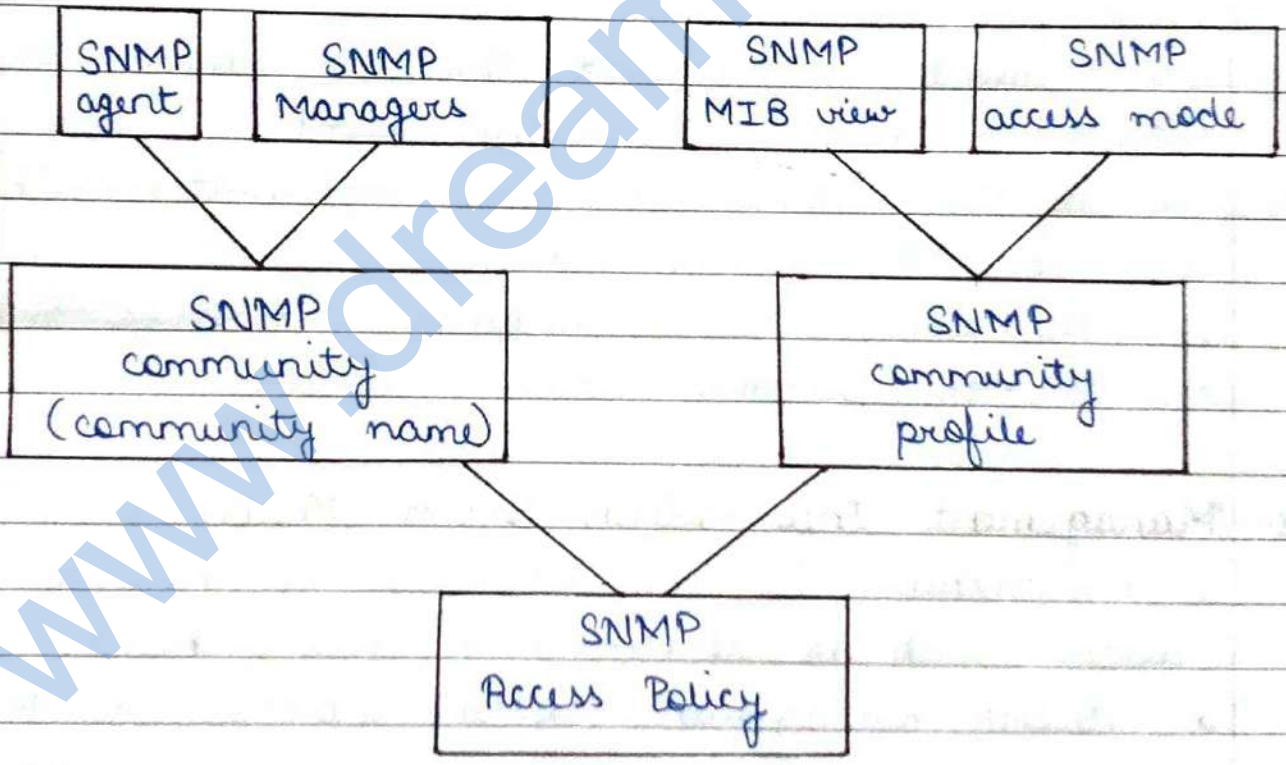 SNMP
agent
SNMP
Managers
SNMP
MIB view
SNMP
access mode
SNMP
community
(community name)
SNMP
community
profile
SNMP
Access Policy
www.dream